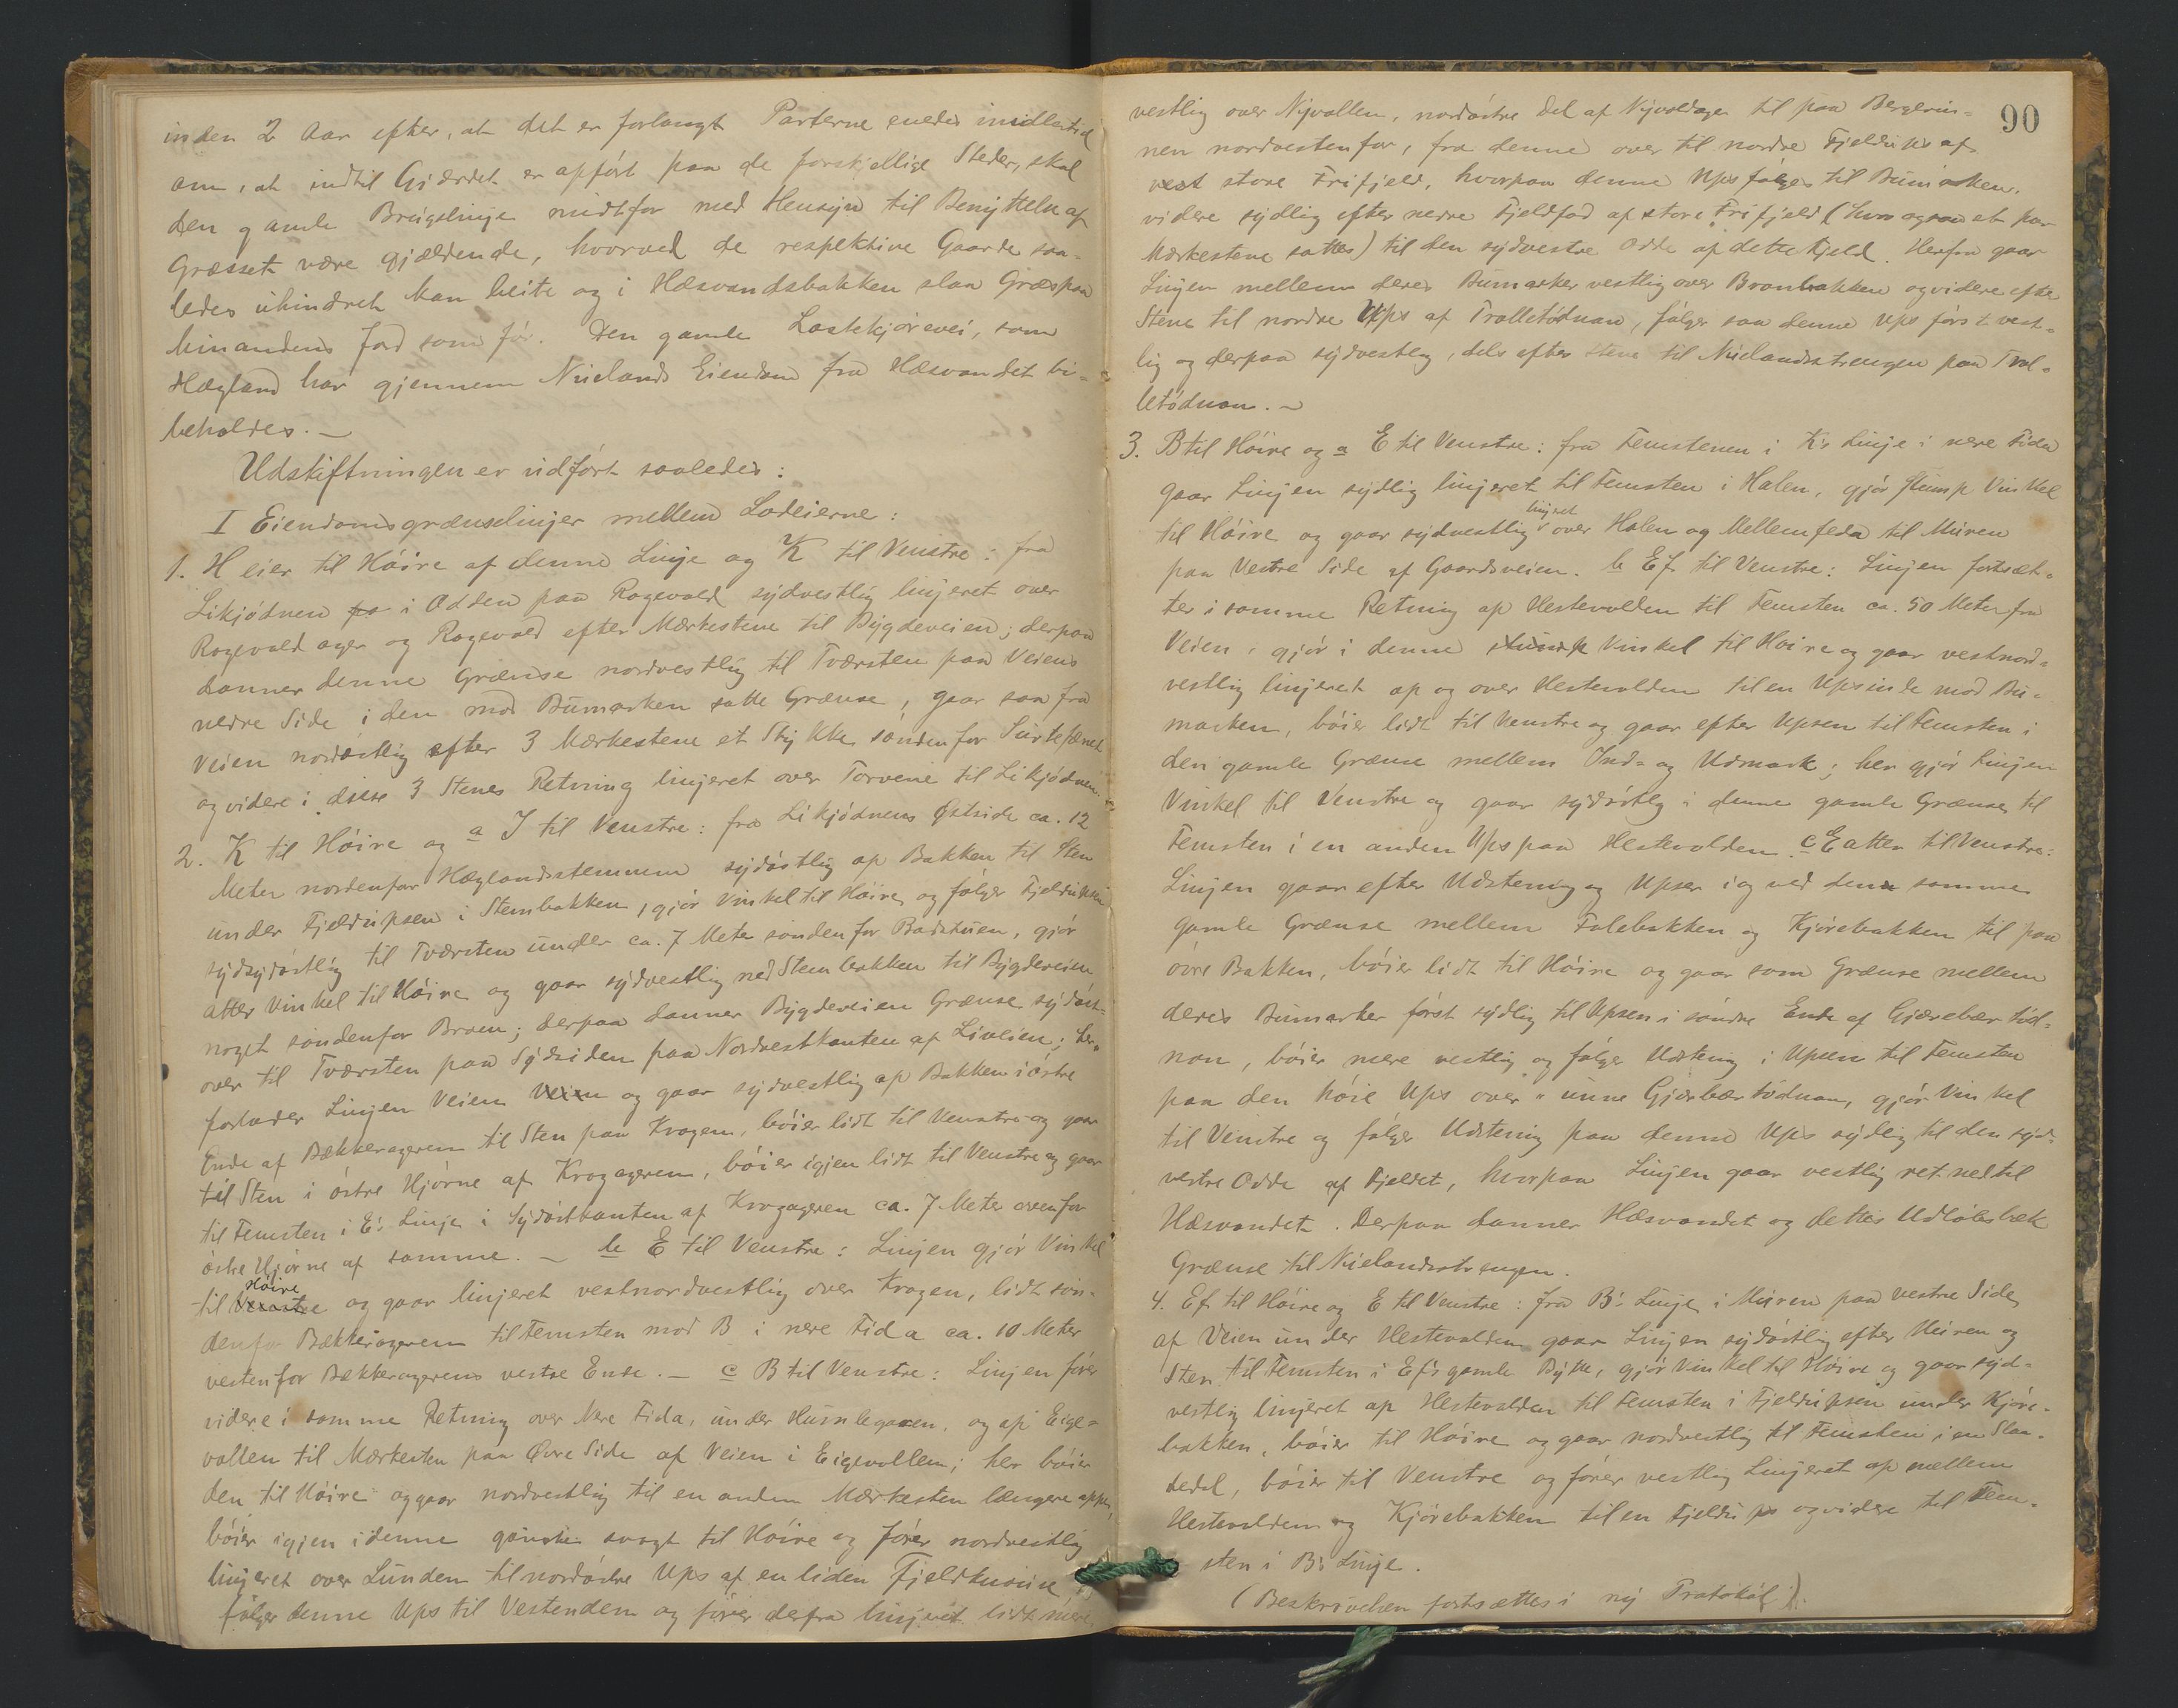 inden 2 Aar efter, at det er forlangt Parterne enedes imidlertid
om, at indtil Gjærdet er opført paa de forskjellige Steder, skal
den gamle Brugslinje midtfor med Hensyn til Benyttelse af
Græsset være gjældende, hvorved de respektive Gaarde saa-
ledes uhindret kan beite og i Hæsvandsbakken slaa Græs paa
hinandens Jord som før. Den gamle Lastekjørevei, som
Hægland har gjennem Nuelands Eiendom fra Hæsvandet bi-
beholdes. —
Udskiftningen er udført saaledes:
I Eiendomsgrænselinjer mellem Lodeierne:
1. H eier til Høire af denne Linje og K til Venstre: fra
Likjødnen i Odden paa Rogevold sydvestlig linjeret over
Rogevold ager og Rogevold efter Mærkestene til Bygdeveien; derpaa
danner denne Grænse nordvestlig til Tværsten paa Veiens
nedre Side i den mod Bumarken satte Grænse, gaar saa fra
Veien nordøstlig efter 3 Mærkestene et Stykke søndenfor Surtefænet
og videre i disse 3 Stenes Retning linjeret over Torvene til Likjødnen. —
2. K til Høire og a J til Venstre: fra Likjødnens Østside ca. 12
Meter nordenfor Hæglandsstemmen sydøstlig op Bakken til Sten
under Fjeldupsen i Stembakken, gjør Vinkel til Høire og følger Fjeldupsen
sydsydøstlig til Tværsten under ca. 7 Meter søndenfor Badstuen, gjør
atter Vinkel til Høire og gaar sydvestlig ned Stembakken til Bygdeveien
noget søndenfor Broen; derpaa danner Bygdeveien Grænse sydøst-
over til Tværsten paa Sydsiden paa Nordvestkanten af Liveien; her
forlader Linjen Veien og gaar sydvestlig op Bakken i østre
Ende af Bækkeragerem til Sten paa Kragem, bøier lidt til Venstre og gaar
til Sten i østre Hjørne af Kragagerem, bøier igjen lidt til Venstre og gaar
til Femsten i E's Linje i Sydøstkanten af Kragageren ca. 7 Meter ovenfor
østre Hjørne af samme. — b E til Venstre: Linjen gjør Vinkel
til Høire og gaar linjeret vestnordvestlig over Kragen, lidt søn-
denfor Bækkeragerem til Femsten mod B i nere Fida ca. 10 Meter
vestenfor Bækkeragerens vestre Ende. — c B til Venstre: Linjen fører
videre i samme Retning over Nere Fida, under Humlegaren, og op Eige-
vollen til Mærkesten paa Øvre Side af Veien i Eigevollem; her bøier
den til Høire og gaar nordvestlig til en anden Mærkesten længere oppe,
bøier igjen i denne ganske svagt til Høire og fører nordvestlig
linjeret over Lunden til nordøstre Ups af en liden Fjeldknause
følger denne Ups til Vestenden og fører derfra linjeret lidt mere
90
vestlig over Nyvollen, nordøstre Del af Nyvoldager til paa Bergerin-
nen nordvestenfor, fra denne over til nordre Fjeldups af
vest store Frifjeld, hvorpaa denne Ups følges til Bumarken.
videre sydlig efter nedre Fjeldfod af store Frifjeld (hvor ogsaa et par
Mærkestene sattes) til den sydvestre Odde af dette Fjeld. Herfra gaar
Linjen mellem deres Bumarker vestlig over Bronbakken og videre efter
Stene til nordre Ups af Trolletødnan, følger saa denne Ups først vest-
lig og derpaa sydvestlig, dels efter Stene til Nuelandsstrengen paa Trol-
letødnan. —
3. B til Høire og a E til Venstre: fra Femstenen i K's Linje i nere Fida
gaar Linjen sydlig linjeret til Femsten i Halen, gjør stump Vinkel
til Høire og gaar sydvestlig linjeret over Halen og Mellemfeda til Muren
paa Vestre Side af Gaardsveien. b Ef til Venstre: Linjen fortsæt-
ter i samme Retning op Hestevolden til Femsten ca. 50 Meter fra
Veien, gjør i denne stump Vinkel til Høire og gaar vestnord-
vestlig linjeret op og over Hestevolden til en Upsinde mod Bu-
marken, bøier lidt til Venstre og gaar efter Upsen til Femsten i
den gamle Grænse mellem Ind- og Udmark; her gjør Linjen
Vinkel til Venstre og gaar sydøstlig i denne gamle Grænse til
Femsten i en anden Ups paa Hestevolden. c E atter til Venstre:
Linjen gaar efter Udstening og Upser i og ved denne samme
gamle Grænse mellem Folebakken og Kjørebakken til paa
øvre Bakken, bøier lidt til Høire og gaar som Grænse mellem
deres Bumarker først sydlig til Upsen i søndre Ende af Gjærebærtød-
nan, bøier mere vestlig og følger Udstening i Upsen til Femsten
paa den høie Ups over unne Gjærbærtødnan, gjør Vinkel
til Venstre og følger Udstening paa denne Ups sydlig til den syd-
vestre Odde af Fjeldet, hvorpaa Linjen gaar vestlig ret ned til
Hæsvandet. Derpaa danner Hæsvandet og dettes Udløbsbæk
Grænse til Nuelandsstrengen.
4. Ef til Høire og E til Venstre: fra B's Linje i Muren paa vestre Side
af Veien under Hestevolden gaar Linjen sydøstlig efter Muren og
Sten til Femsten i Ef's gamle Bytte, gjør Vinkel til Høire og gaar syd-
vestlig linjeret op Hestevolden til Femsten i Fjeldupsen under Kjøre-
bakken, bøier til Høire og gaar nordvestlig til Femsten i en Slaa-
dedel, bøier til Venstre og fører vestlig Linjeret op mellem
Hestevolden og Kjørebakken til en Fjeldups og videre til Fem-
sten i B's Linje.
(Beskrivelsen fortsættes i ny Protokol).